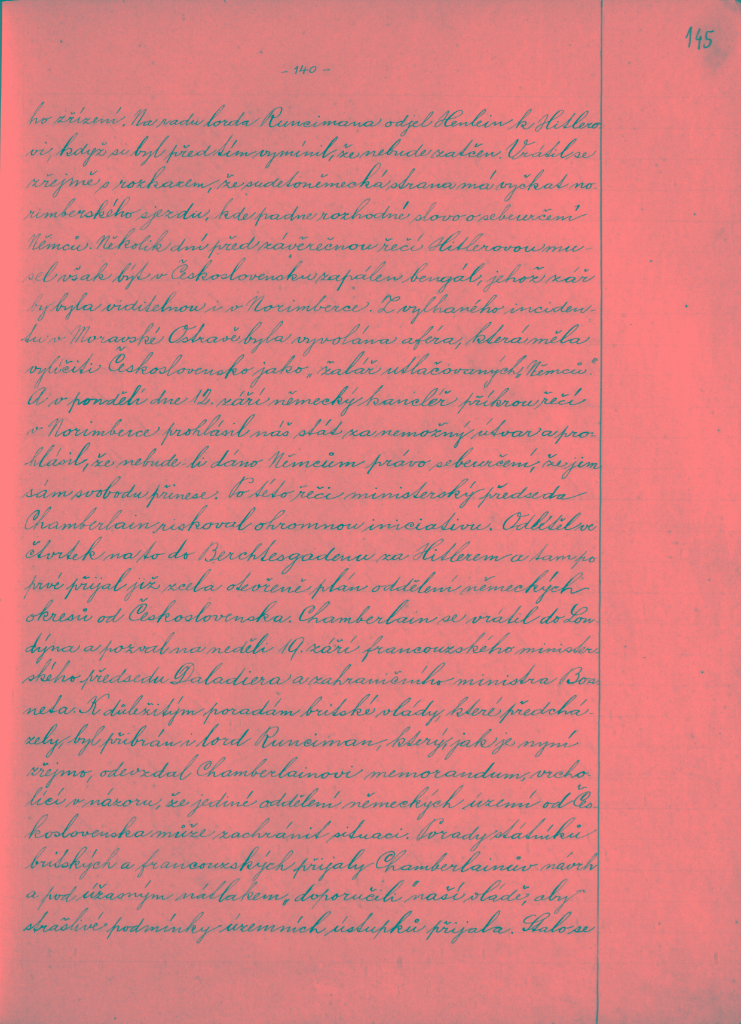 145
- 140 -
ho zřízení. Na radu lorda Runcimana odjel Henlein k Hitlero-
vi, když si byl před tím vymínil, že nebude zatčen. Vrátil se
zřejmě s rozkazem, že sudetoněmecká strana má vyčkat no-
rimberského sjezdu, kde padne rozhodné slovo o sebeurčení
Němců. Několik dní před závěrečnou řečí Hitlerovou mu-
sel však být v Československu zapálen bengál, jehož zář
by byla viditelnou i v Norimberce. Z vylhaného inciden-
tu v Moravské Ostravě byla vyvolána aféra, která měla
vylíčiti Československo jako „žalář utlačovaných Němců".
A v pondělí dne 12. září německý kancléř příkrou řečí
v Norimberce prohlásil náš stát za nemožný útvar a pro-
hlásil, že nebude-li dáno Němcům právo sebeurčení, že jim
sám svobodu přinese. Po této řeči ministerský předseda
Chamberlain riskoval ohromnou iniciativu. Odlétěl ve
čtvrtek na to do Berchtesgadenu za Hitlerem a tam po
prvé přijal již zcela otevřeně plán oddělení německých
okresů od Československa. Chamberlain se vrátil do Lon-
dýna a pozval na neděli 19. září francouzského minister-
ského předsedu Daladiera a zahraničního ministra Bon-
neta. K důležitým poradám britské vlády, které předchá-
zely, byl přibrán i lord Runciman, který, jak je nyní
zřejmo, odevzdal Chamberlainovi memorandum, vrcho-
lící v názoru, že jediné oddělení německých území od Čes-
koslovenska může zachránit situaci. Porady státníků
britských a francouzských přijaly Chamberlainův návrh
a pod úžasným nátlakem „doporučili" naší vládě, aby
strašlivé podmínky územních ústupků přijala. Stalo se